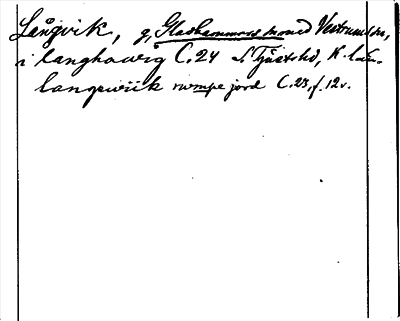 Långvik, g, Gladhammars socned Vestrum
i langhawig C. 24 S. Tjust hd, K. l.
langewiik rumpe jord C. 23, f. 12v.